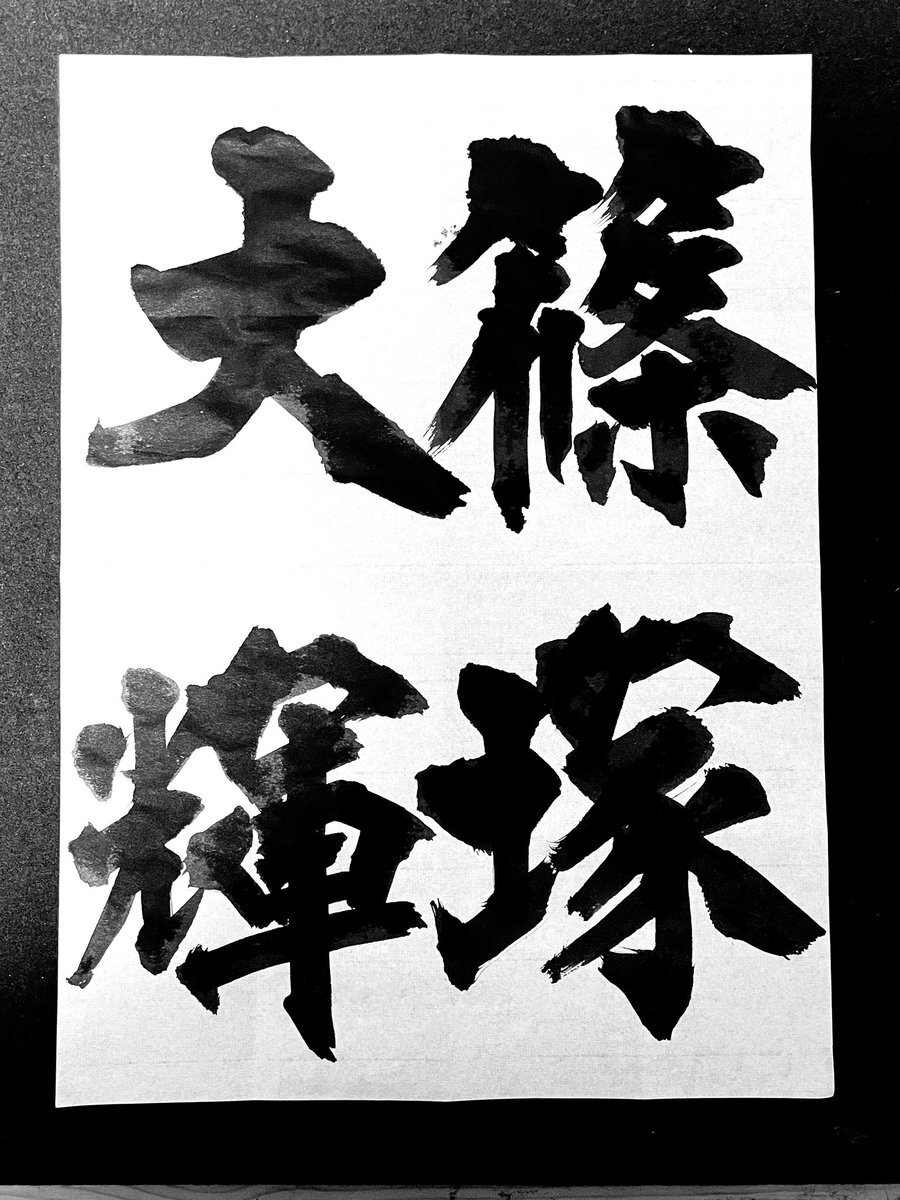 篠塚
大輝